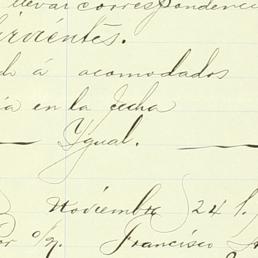 llevar correspondenci
irvientes.
d á acomodados
ia en la fecha
Ygual.
Noviembre 24 1.
or o/q. Francisco